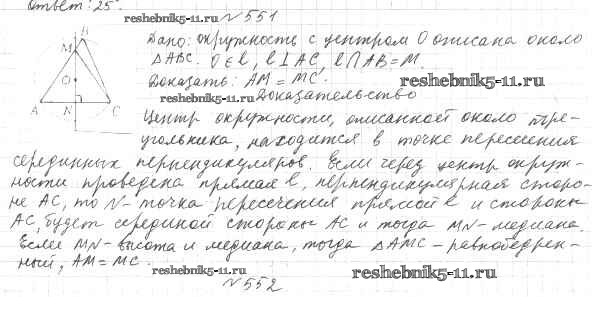 Ответ: 25°.
reshebnik5-11.ru №551
Дано: окружность с центром O описана около
ΔABC. O∈l, l⊥AC, l∩AB=M.
reshebnik5-11.ru
Доказать: AM=MC.
reshebnik5-11.ru Доказательство
B
M
O
A N C
Центр окружности, описанной около тре-
угольника, находится в точке пересечения
серединных перпендикуляров. Если через центр окруж-
ности проведена прямая l, перпендикулярная сторо-
не AC, то N-точка пересечения прямой l и стороны
AC, будет серединой стороны AC и тогда MN-медиана.
Если MN-высота и медиана, тогда ΔAMC-равнобедрен-
ный, AM=MC.
reshebnik5-11.ru reshebnik5-11.ru
№552